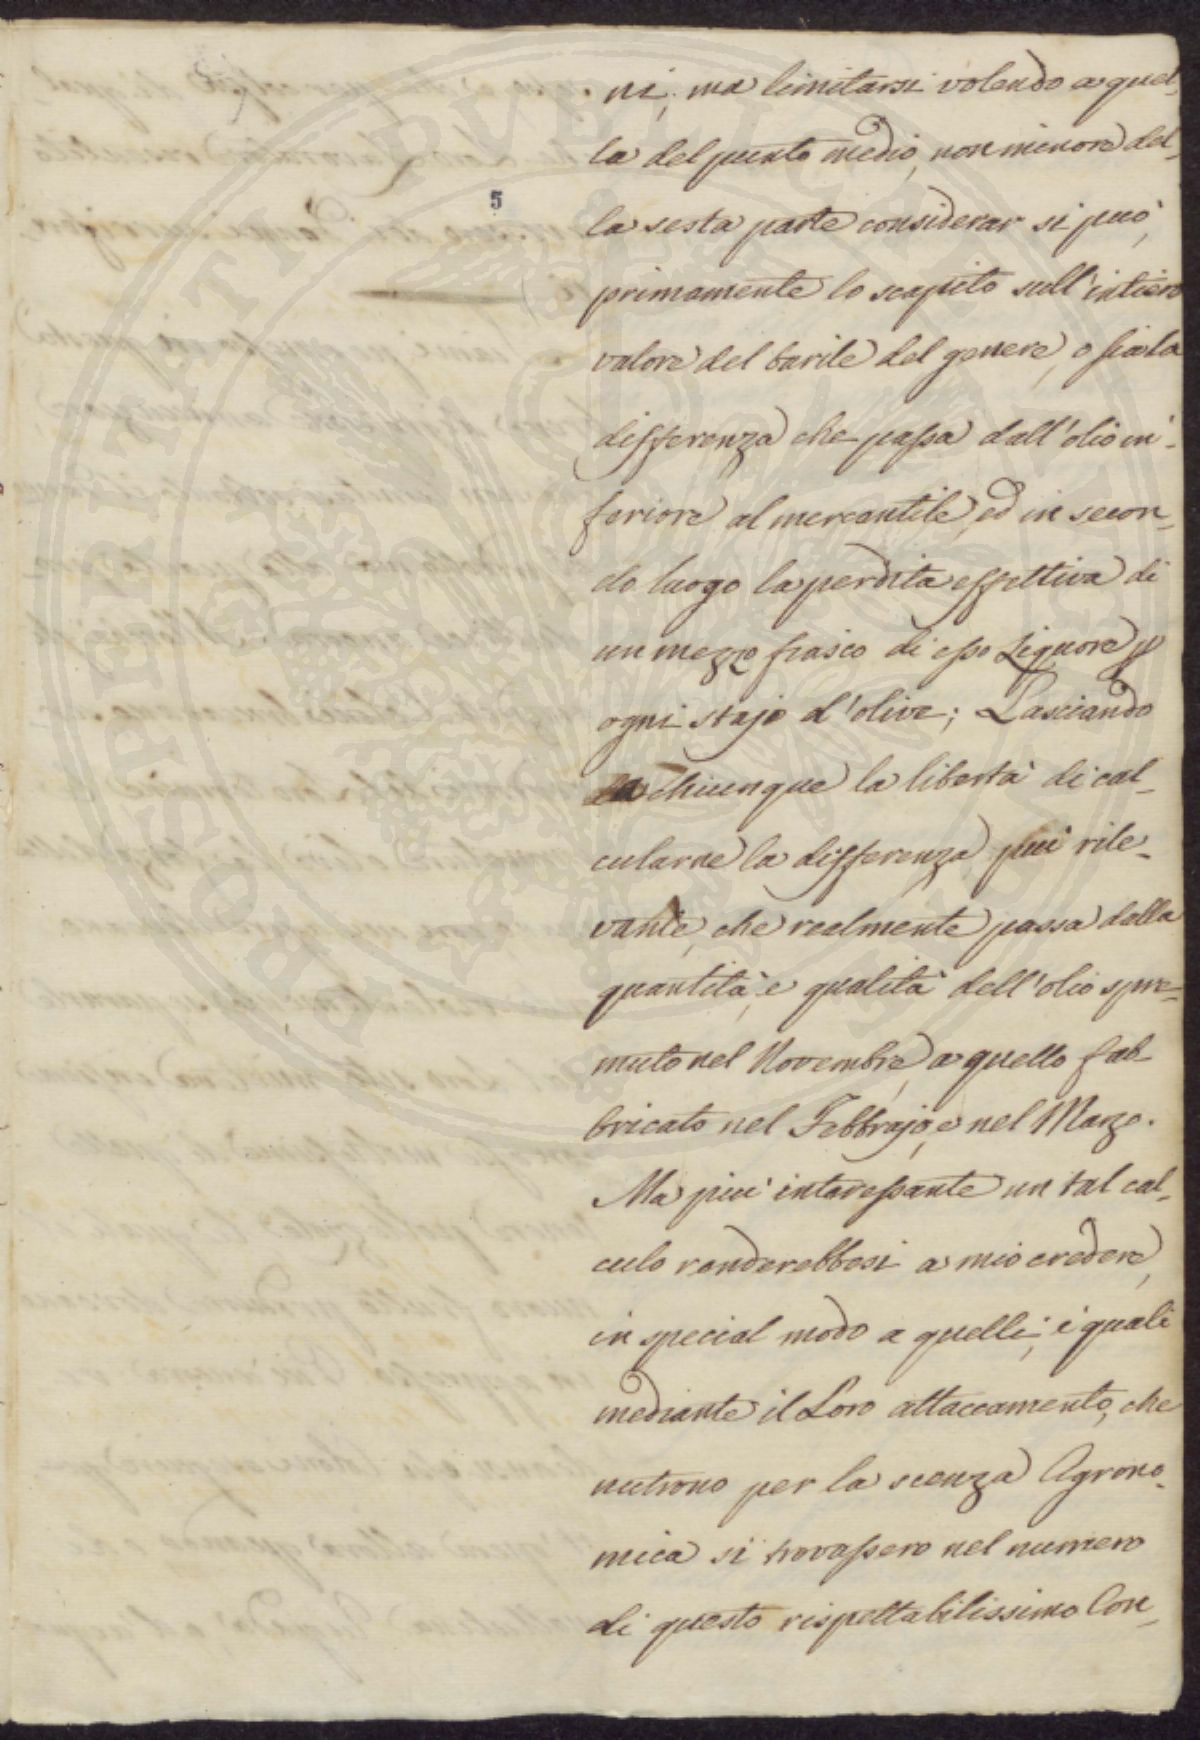 5
ni; ma limitarsi volendo a quel-
la del punto medio, non minore del-
la sesta parte considerar si può,
primamente lo scapito sull'intiero
valore del barile del genere, o sia la
differenza che passa dall'olio in-
feriore al mercantile, ed in secon-
do luogo la perdita effettiva di
un mezzo fiasco di esso Liquore p
ogni stajo d'olive; Lasciando
a chiunque la libertà di cal-
cularne la differenza piui rile-
vante, che realmente passa dalla
quantità, e qualità dell'olio spre-
muto nel Novembre, a quello fab-
bricato nel Febbrajo, e nel Marzo.
Ma piui interessante un tal cal-
culo renderebbesi a mio credere,
in special modo a quelli, i quali
mediante il Loro attaccamento, che
nutrono per la scenza Agrono-
mica si trovassero nel numero
di questo rispettabilissimo Con-